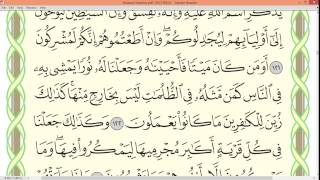 يُذْكَرِ ٱسْمُ ٱللَّهِ عَلَيْهِ وَإِنَّهُۥ لَفِسْقٌ وَإِنَّ ٱلشَّيَٰطِينَ لَيُوحُونَ
إِلَىٰٓ أَوْلِيَآئِهِمْ لِيُجَٰدِلُوكُمْ ۖ وَإِنْ أَطَعْتُمُوهُمْ إِنَّكُمْ لَمُشْرِكُونَ
١٢١ أَوَمَن كَانَ مَيْتًا فَأَحْيَيْنَٰهُ وَجَعَلْنَا لَهُۥ نُورًا يَمْشِى بِهِۦ
فِى ٱلنَّاسِ كَمَن مَّثَلُهُۥ فِى ٱلظُّلُمَٰتِ لَيْسَ بِخَارِجٍ مِّنْهَا ۚ كَذَٰلِكَ
زُيِّنَ لِلْكَٰفِرِينَ مَا كَانُوا۟ يَعْمَلُونَ ١٢٢ وَكَذَٰلِكَ جَعَلْنَا
فِى كُلِّ قَرْيَةٍ أَكَٰبِرَ مُجْرِمِيهَا لِيَمْكُرُوا۟ فِيهَا ۖ وَمَا